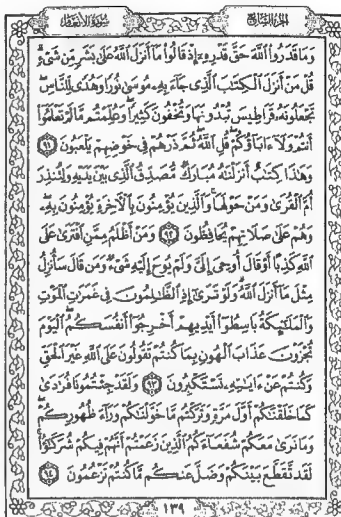 سورة الأنعام الجزء السابع
وَمَا قَدَرُوا اللَّهَ حَقَّ قَدْرِهِ إِذْ قَالُوا مَا أَنزَلَ اللَّهُ عَلَىٰ بَشَرٍ مِّن شَيْءٍ
قُلْ مَنْ أَنزَلَ الْكِتَٰبَ الَّذِي جَاءَ بِهِ مُوسَىٰ نُورًا وَهُدًى لِّلنَّاسِ
تَجْعَلُونَهُ قَرَاطِيسَ تُبْدُونَهَا وَتُخْفُونَ كَثِيرًا وَعُلِّمْتُم مَّا لَمْ تَعْلَمُوا
أَنتُمْ وَلَا ءَابَاؤُكُمْ قُلِ اللَّهُ ثُمَّ ذَرْهُمْ فِي خَوْضِهِمْ يَلْعَبُونَ ٩١
وَهَٰذَا كِتَٰبٌ أَنزَلْنَٰهُ مُبَارَكٌ مُّصَدِّقُ الَّذِي بَيْنَ يَدَيْهِ وَلِتُنذِرَ
أُمَّ الْقُرَىٰ وَمَنْ حَوْلَهَا وَالَّذِينَ يُؤْمِنُونَ بِالْءَاخِرَةِ يُؤْمِنُونَ بِهِ
وَهُمْ عَلَىٰ صَلَاتِهِمْ يُحَافِظُونَ ٩٢ وَمَنْ أَظْلَمُ مِمَّنِ افْتَرَىٰ عَلَى
اللَّهِ كَذِبًا أَوْ قَالَ أُوحِيَ إِلَيَّ وَلَمْ يُوحَ إِلَيْهِ شَيْءٌ وَمَن قَالَ سَأُنزِلُ
مِثْلَ مَا أَنزَلَ اللَّهُ وَلَوْ تَرَىٰ إِذِ الظَّٰلِمُونَ فِي غَمَرَٰتِ الْمَوْتِ
وَالْمَلَٰئِكَةُ بَاسِطُوا أَيْدِيهِمْ أَخْرِجُوا أَنفُسَكُمُ الْيَوْمَ
تُجْزَوْنَ عَذَابَ الْهُونِ بِمَا كُنتُمْ تَقُولُونَ عَلَى اللَّهِ غَيْرَ الْحَقِّ
وَكُنتُمْ عَنْ ءَايَٰتِهِ تَسْتَكْبِرُونَ ٩٣ وَلَقَدْ جِئْتُمُونَا فُرَٰدَىٰ
كَمَا خَلَقْنَٰكُمْ أَوَّلَ مَرَّةٍ وَتَرَكْتُم مَّا خَوَّلْنَٰكُمْ وَرَاءَ ظُهُورِكُمْ
وَمَا نَرَىٰ مَعَكُمْ شُفَعَاءَكُمُ الَّذِينَ زَعَمْتُمْ أَنَّهُمْ فِيكُمْ شُرَكَٰؤُا
لَقَد تَّقَطَّعَ بَيْنَكُمْ وَضَلَّ عَنكُم مَّا كُنتُمْ تَزْعُمُونَ ٩٤
١٣٩